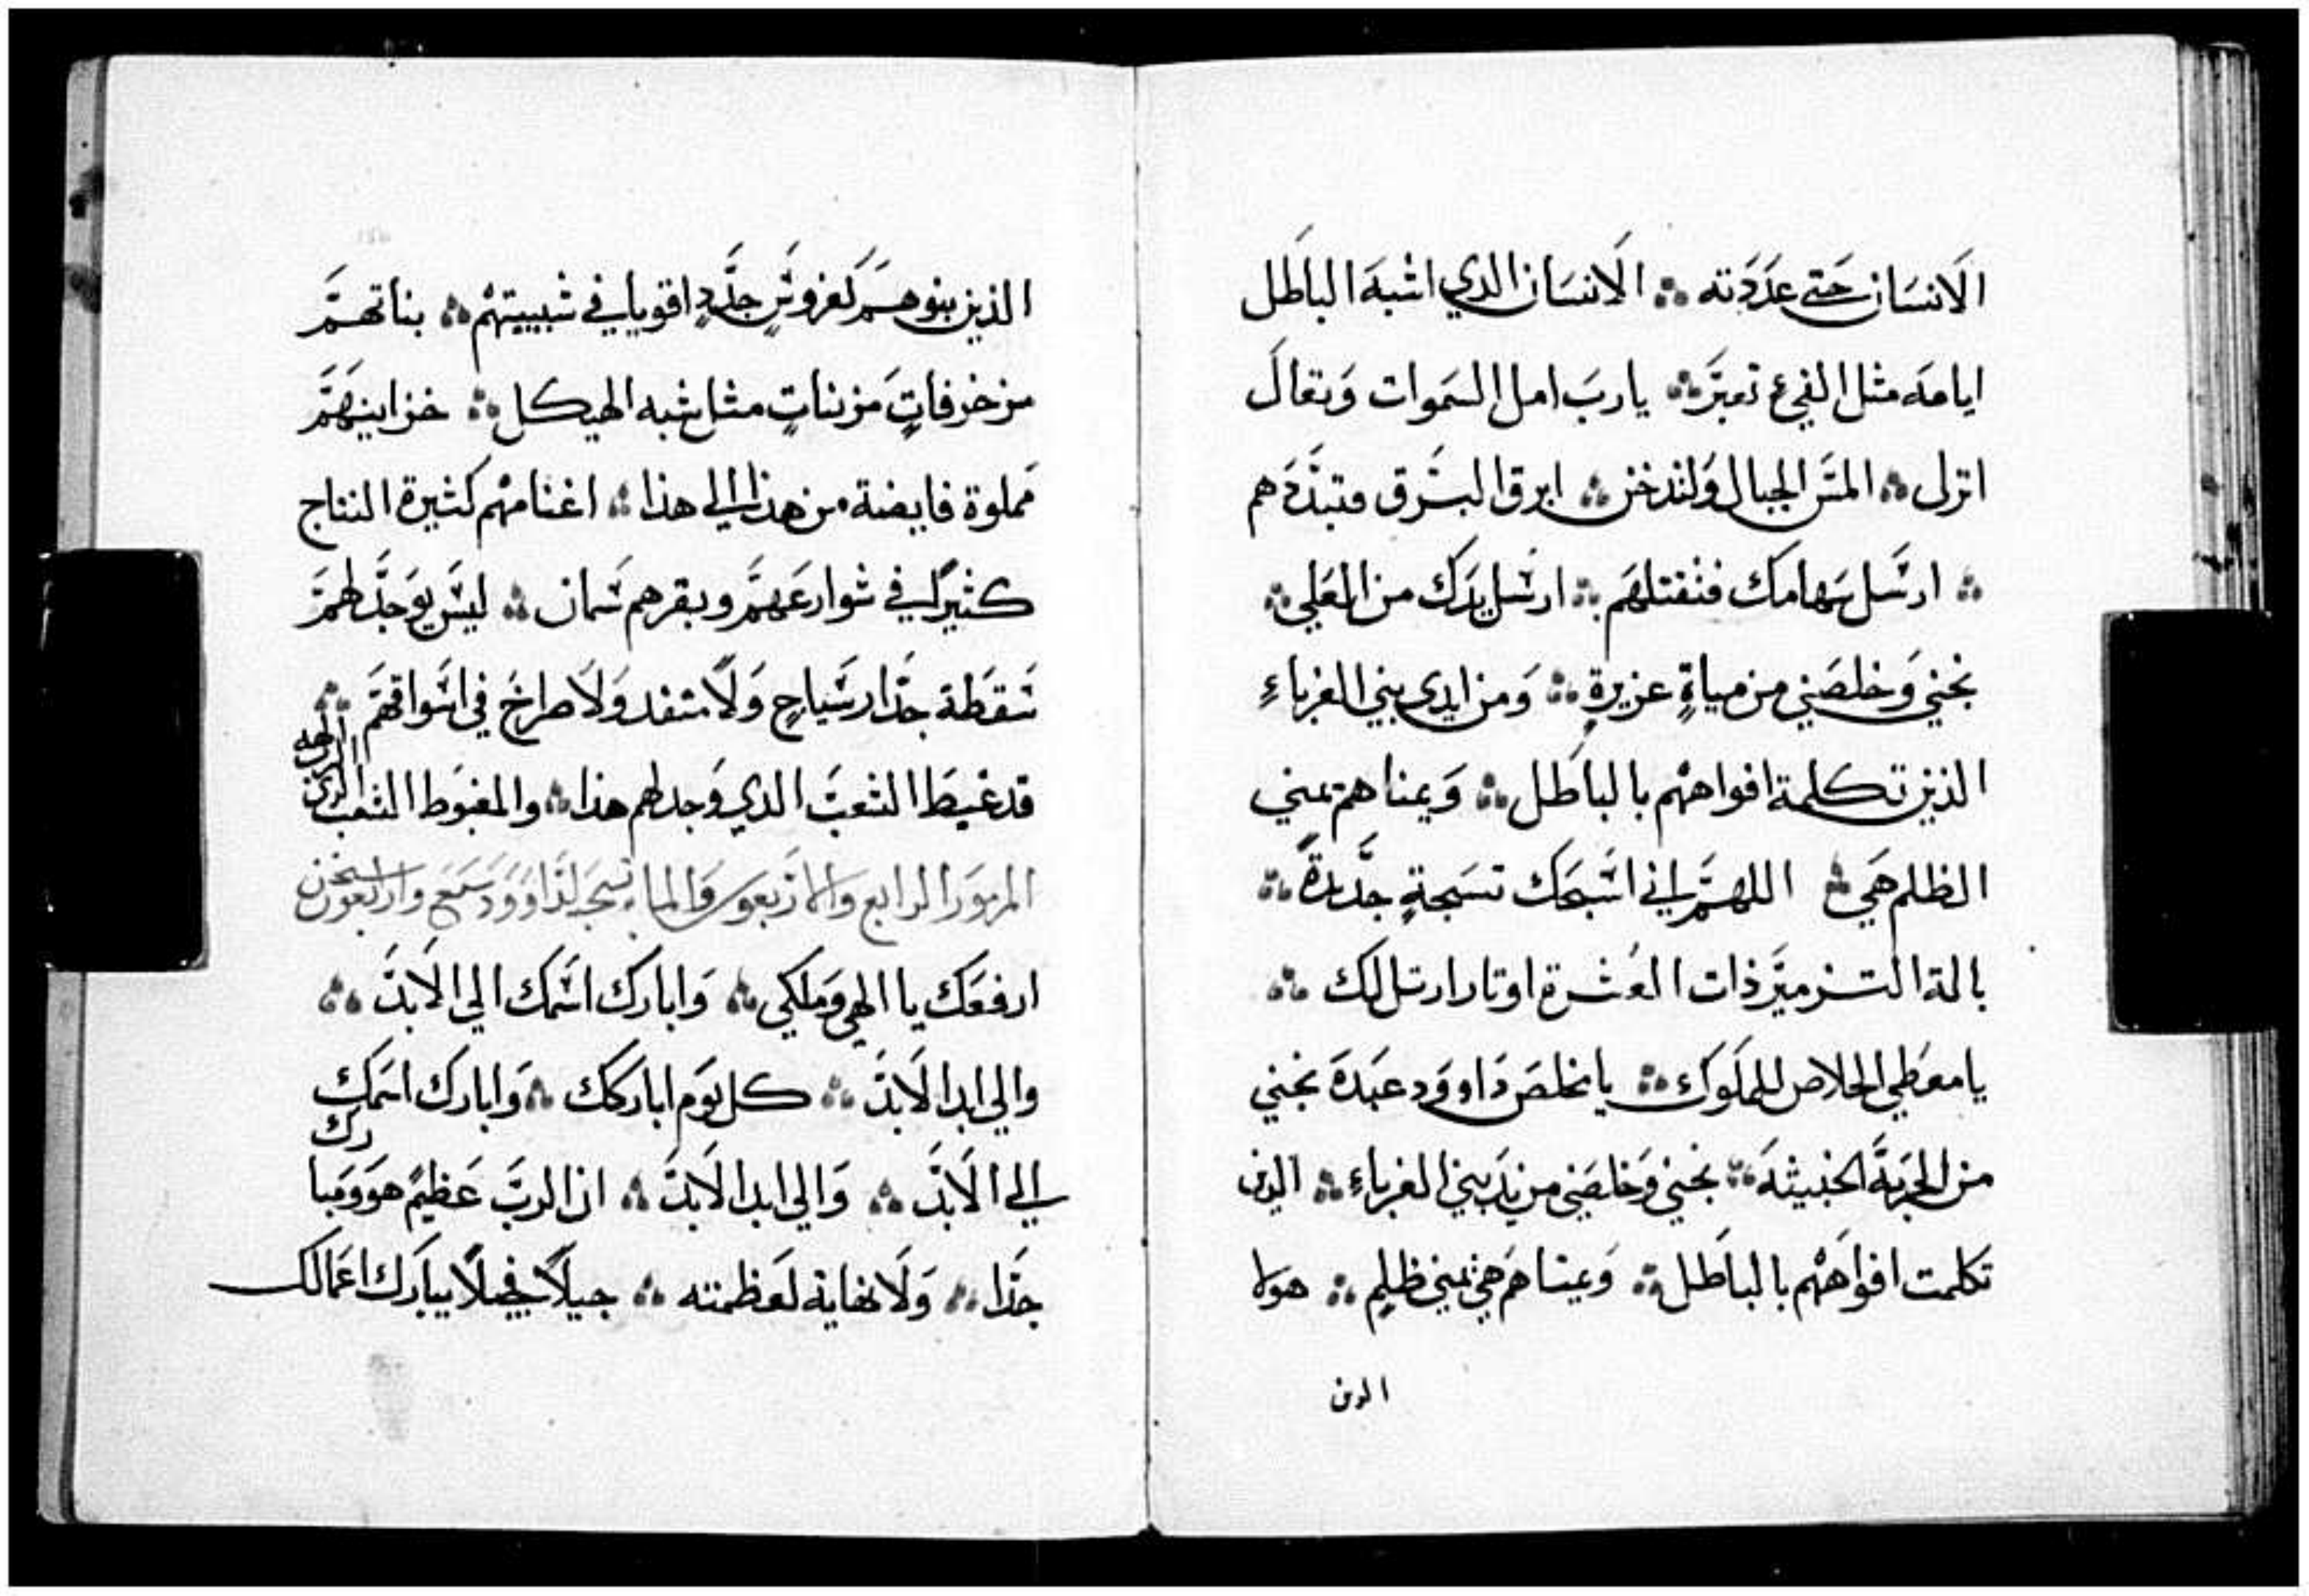 الانسَان حَتي عَدَدَته ؞ الانسَان الدي اشبهَ الباطل
ايامه مثل الفيء تعبرَ ؞ ياربَ امل السَموات وَتعال
انزل ؞ المسَ الجبال وَلتدخن ؞ ابرق البرق فتبدَدهم
؞ ارسَل سَهامك فتقتلهَم ؞ ارسَل يدَك من العَلي ؞
نجني وَخلصَني من مياةٍ عزيرةٍ ؞ وَمن ايدي بني الغرباء
الذين تكلمة افواههم بالباطل ؞ وَيمناهم يمني
الظلم هَي ؞ اللهمَ اني اسَبحَك تسَبحةٍ جدَيدةً ؞
بالة التزميرَ ذات العُشرة اوتار ارتل لك ؞
يا معَطي الخلاص للملوَك ؞ يا مخلصَ دَاووَد عبَدهَ نجني
من الحَربةَ الخبيثهَ ؞ نجني وَخلصَني من يدَ بني الغرباء ؞ الدين
تكلمت افواَههم بالباطل ؞ وَيمناهمَ هي يمني ظلمٍ ؞ هولا
الدين
الذين بنوهمَ كغروسٍ جدَدٍ اقويا في شبيبتهم ؞ بناتهمَ
مزخرفاتٍ مَزيناتٍ مثل شبه الهيكل ؞ خزاينهَمَ
مَملوة فايضة من هذا الي هذا ؞ اغنامهم كثيرة النتاج
كثيرًا في شوارعَهمَ وبقرهم سَمان ؞ ليسَ يوَجدَ لهمَ
سَقطَة جدَار سَياجٍ وَلا منفد وَلا صراخَ في اسَواقهمَ ؞
قد غبطَ الشعبَ الذي وَجد لهم هذا ؞ والمغبوَط الشعب الذي الرب الهه
المزموَر الرابع والاربعوَن وَالمايه تسَبحَة لدَاووَد سَبعَ واربعون
ارفعَك يا الهي وَملكي ؞ وَابارك اسَمك الي الابدَ ؞
والي ابد الابدَ ؞ كل يوَم اباركك ؞ وَابارك اسَمك
الي الابدَ ؞ وَالي ابد الابدَ ؞ ان الربَ عَظيمً هوَ وَمبارك
جدَا ؞ وَلا نهاية لعَظمته ؞ جيلاً فجيلاً يبارَك اعَمالك